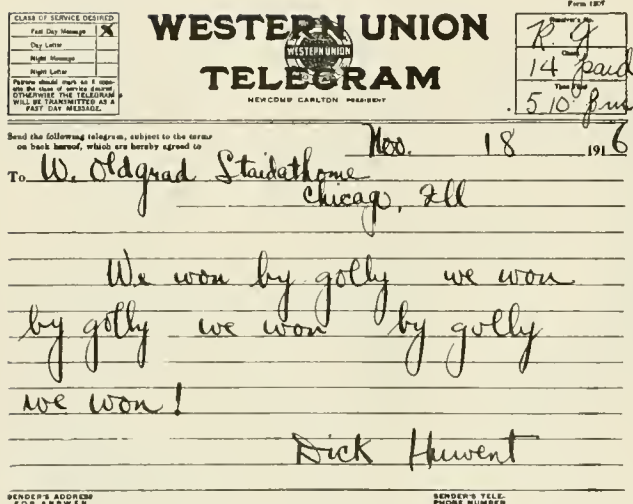 Form 1207
CLASS OF SERVICE DESIRED
Fast Day Message X
Day Letter
Night Message
Night Letter
Patrons should mark an X oppo-
site the class of service desired:
OTHERWISE THE TELEGRAM
WILL BE TRANSMITTED AS A
FAST DAY MESSAGE.
WESTERN UNION
WESTERN UNION
TELEGRAM
NEWCOMB CARLTON PRESIDENT
Receiver's No.
R G
Check
14 paid
Time Filed
510 pm
Send the following telegram, subject to the terms
on back hereof, which are hereby agreed to
Nov. 18 1916
To W. Oldgrad Staidathome
Chicago, Ill
We won by golly we won
by golly we won by golly
we won!
Dick Huwent
SENDER'S ADDRESS
FOR ANSWER
SENDER'S TELE-
PHONE NUMBER